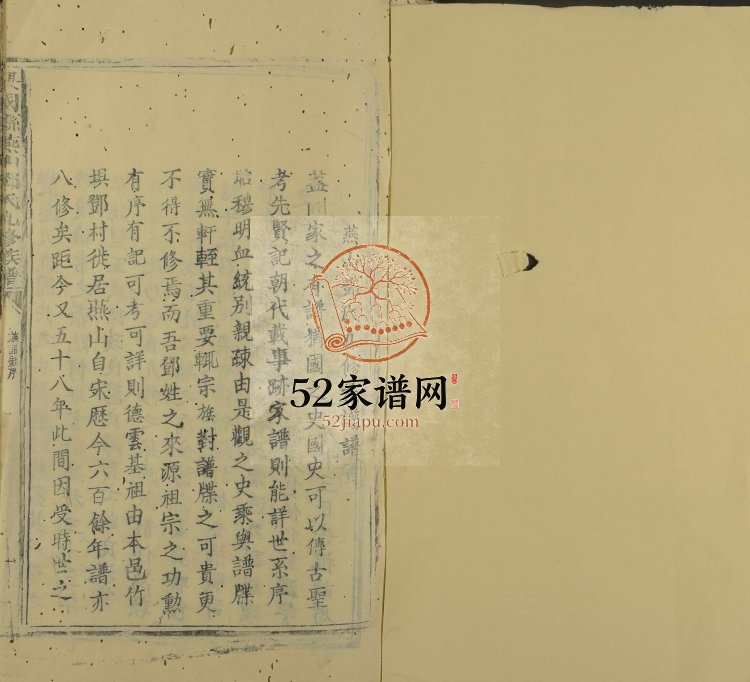 燕 鄧氏九修 譜
蓋 家之有譜猶國 史國史可以傳古聖
考先賢記朝代載事跡家譜則能詳世系序
昭穆明血統別親疎由是觀之史乘與譜牒
實無軒輊其重要輒宗族對譜牒之可貴更
不得不修焉而吾鄧姓之來源祖宗之功勳
有序有記可考可詳則德雲基祖由本邑竹
垻鄧村徙居燕山自宋歷今六百餘年譜亦
八修矣距今又五十八年此間因受時世之
興國縣燕山鄧氏九修族譜
族譜新序
一
52家谱网
52jiapu.com